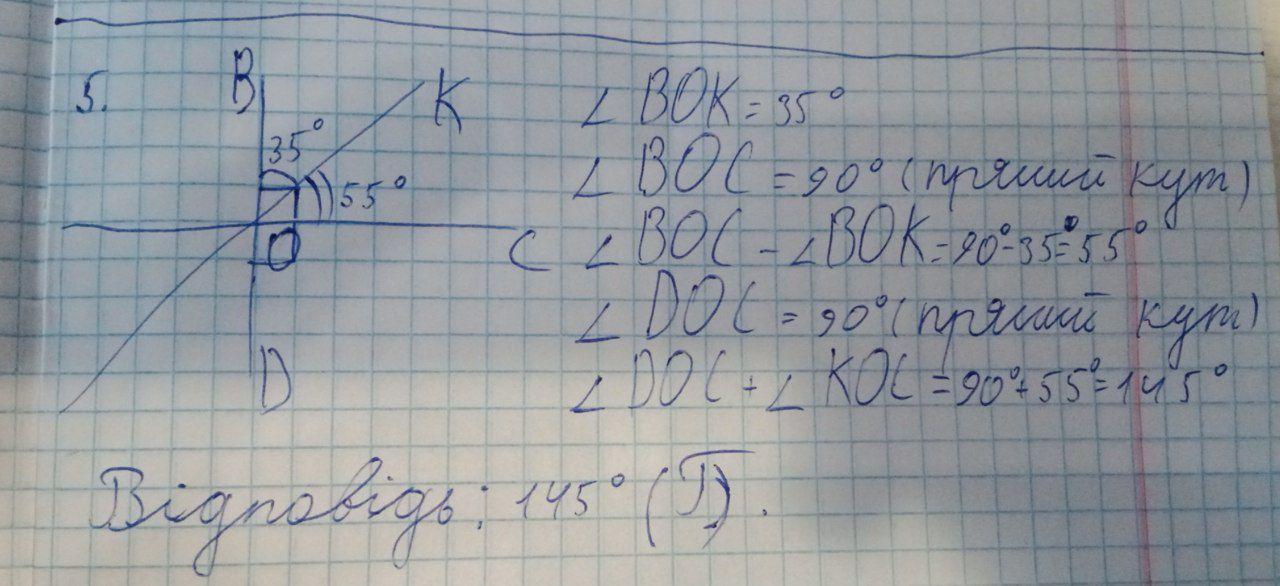 5.
B
K
35°
55°
O
C
D
∠ BOK = 35°
∠ BOC = 90° (прямий кут)
∠ BOC - ∠ BOK = 90° - 35° = 55°
∠ DOC = 90° (прямий кут)
∠ DOC + ∠ KOC = 90° + 55° = 145°
Відповідь: 145° (Г).